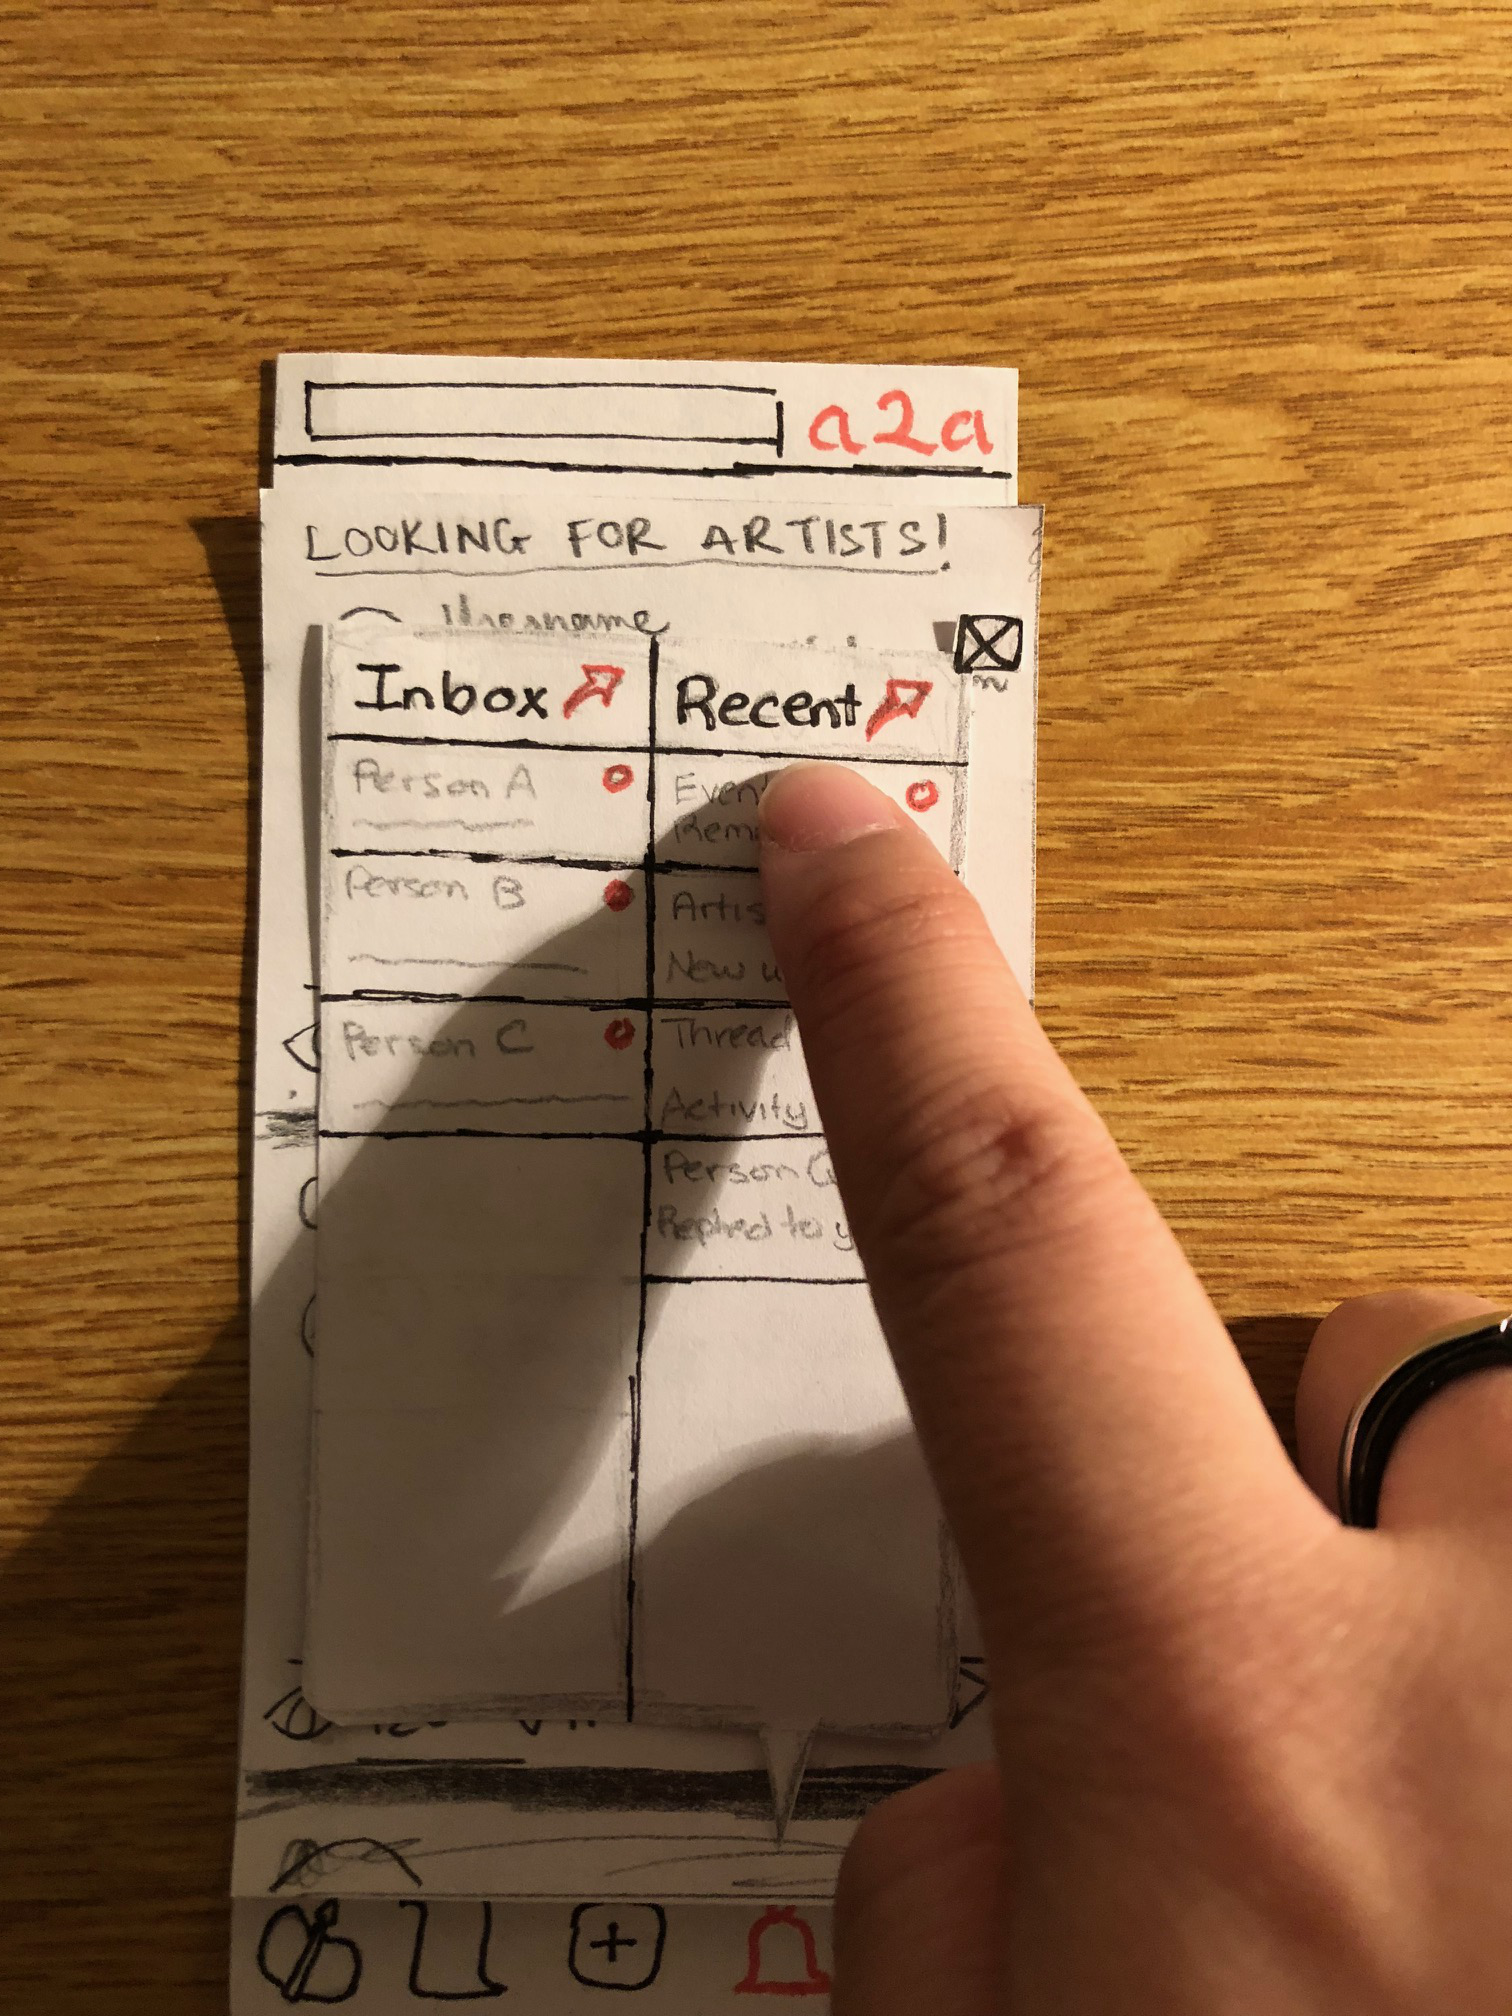 a2a
LOOKING FOR ARTISTS!
Username
Inbox
Recent
Person A
Person B
Person C
Thread
Activity
Person Q
Replied to